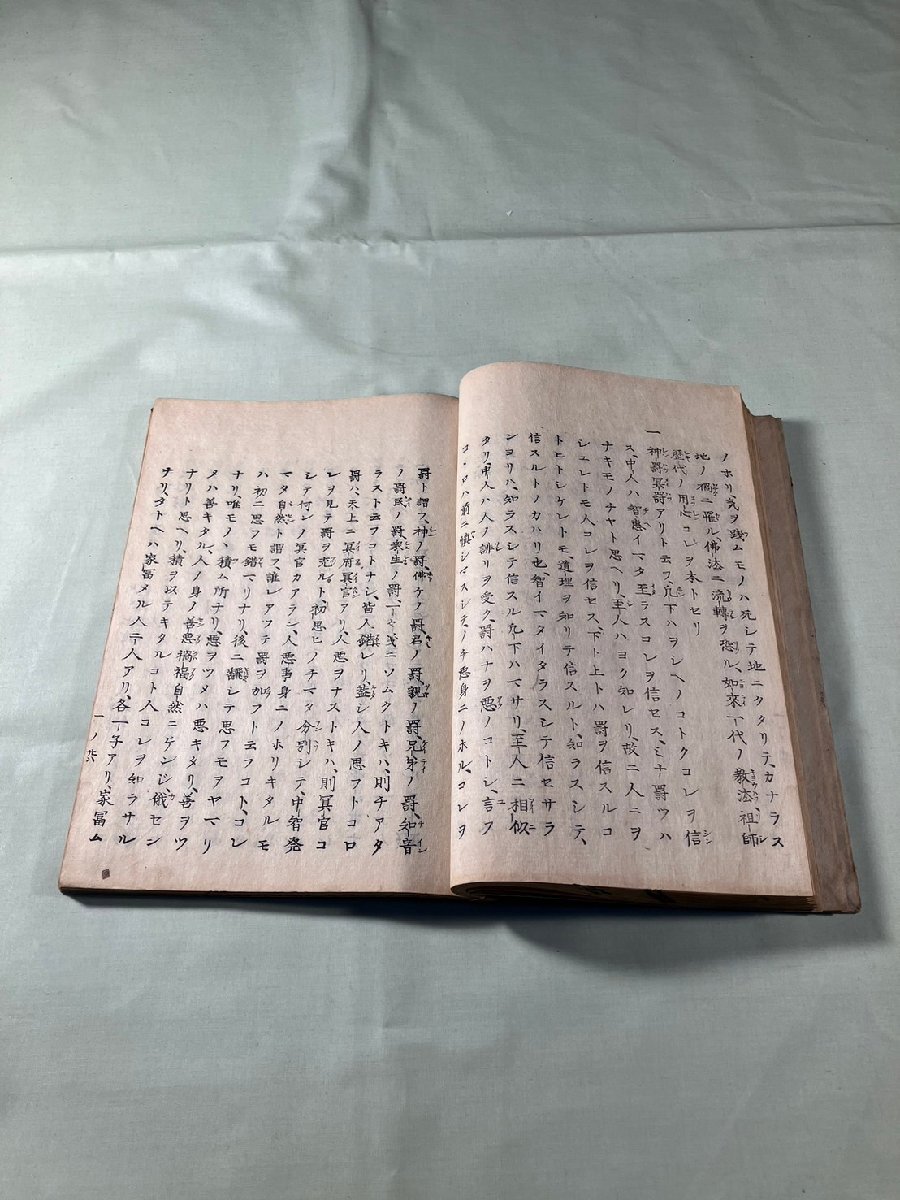 ノホリ弐ヲ践ムモノハ死シテ地ニクタリテ、カナラス
地ノ獨ニ罹ル、佛法ニ流轉ヲ恐ル、如來一代ノ教法祖師
歴代ノ用心コレヲ本トセリ
一神罸冥罸アリト云フ、凡下ハヲシヘノコトクコレヲ信
ス、中人ハ智惠イマタ至ラスコレヲ信セス、ミナ罸ツハ
ナキモノチヤト思ヘリ、至人ハヨク知レリ、故ニ人ニヲ
シエレトモ人コレヲ信セス、下ト上トハ罸ヲ信スルコ
トヒトシケレトモ道理ヲ知リテ信スルト、知ラスシテ、
信スルトノカハリ也、智イマタイタラスシテ信セサラ
ンヨリハ、知ラスシテ信スル凡下ハマサリ、至人ニ相似
タリ、中人ハ人ノ誹リヲ受ク、罸ハナヲ悪ノコトシ、言フ
コヽロハ前ニ慎シマスシテ、ノチ悪身ニノホル、コレヲ
罸ト習ス、神ノ罸、佛ケノ罸、君ノ罸、親ノ罸、兄弟ノ罸、知音
ノ罸、民ノ罸、衆生ノ罸、
ラスト云フコトナシ、皆人錯レリ、蓋シ人ノ思フトコロ
罸ハ、天上ニ冥府冥官アリ、人悪ヲナストキハ、則冥官コ
レヲ見テ罸ヲ
シテ行ンノ冥官カアラン、人悪事身ニノホリキタルモ
マタ自然ト謂フ、誰レアツテ罸ヲ加フト云フコト、コレ
ハ初ニ思フモ錯マリナリ、後ニ翻シテ思フモアヤマリ
ナリ、唯モノヽ積ム所ナリ、悪ヲツメハ悪キタリ、善ヲツ
メハ善キタル、人ノ身ノ善悪禍福自然ニテンジ
ナリト思ヘリ、積ヲ以テキタルコト人コレヲ知ラサル
ナリ、タトヘハ家冨メル人二人アリ、各一子アリ、家冨ム